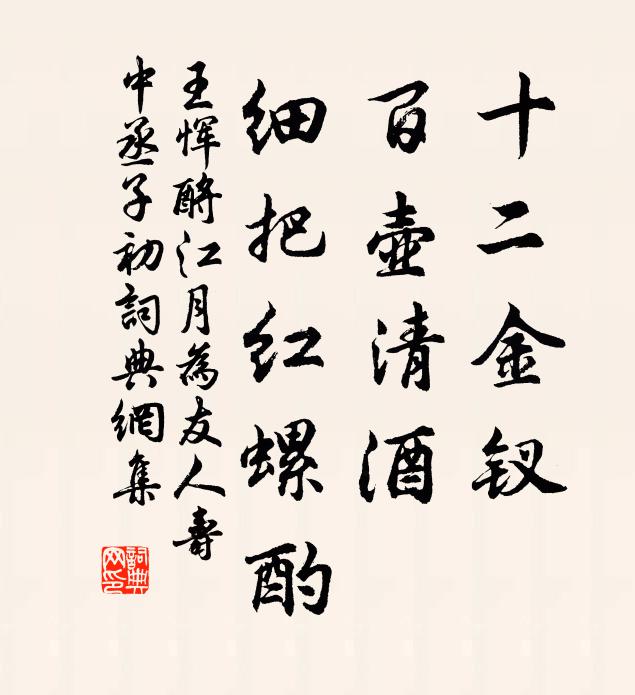 十二金钗
百壺清酒
细把红螺酌
王恽酹江月為友人壽
中丞子初詞典網集
詞典网印